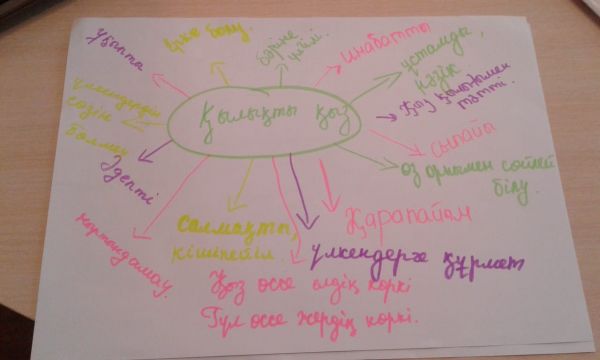 Қылықты қыз
ұятты
ерке болу.
өзіне
инабатты
ұстамды,
нәзік
Қыз қылығымен
тәтті.
сыпайы
өз орнымен сөйлей
білу.
Қарапайым
үлкендерге құрмет
Қыз өссе елдің көркі
Гүл өссе жердің көркі.
салмақты,
кішіпейіл.
мақтанбау.
Әдепті
үлкендердің
сөзін
бөлмеу